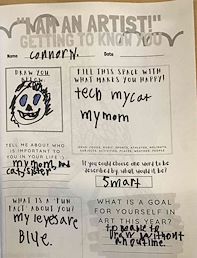 "I AM AN ARTIST!"
GETTING TO KNOW YOU
Name connory. Date
DRAW YOU
FILL THIS SPACE WITH
WHAT MAKES YOU HAPPY!
tech my cat
my mom
TELL ME ABOUT WHO
IS IMPORTANT TO
YOU IN YOUR LIFE :)
my mom, and
cat, sister
If you could choose one word to be
described by, what would it be?
Smart
WHAT IS A "FUN
FACT" ABOUT YOU?
my leyes are
Blue.
WHAT IS A GOAL
FOR YOURSELF IN
ART THIS YEAR?
to be able to
Draw without
an outline.